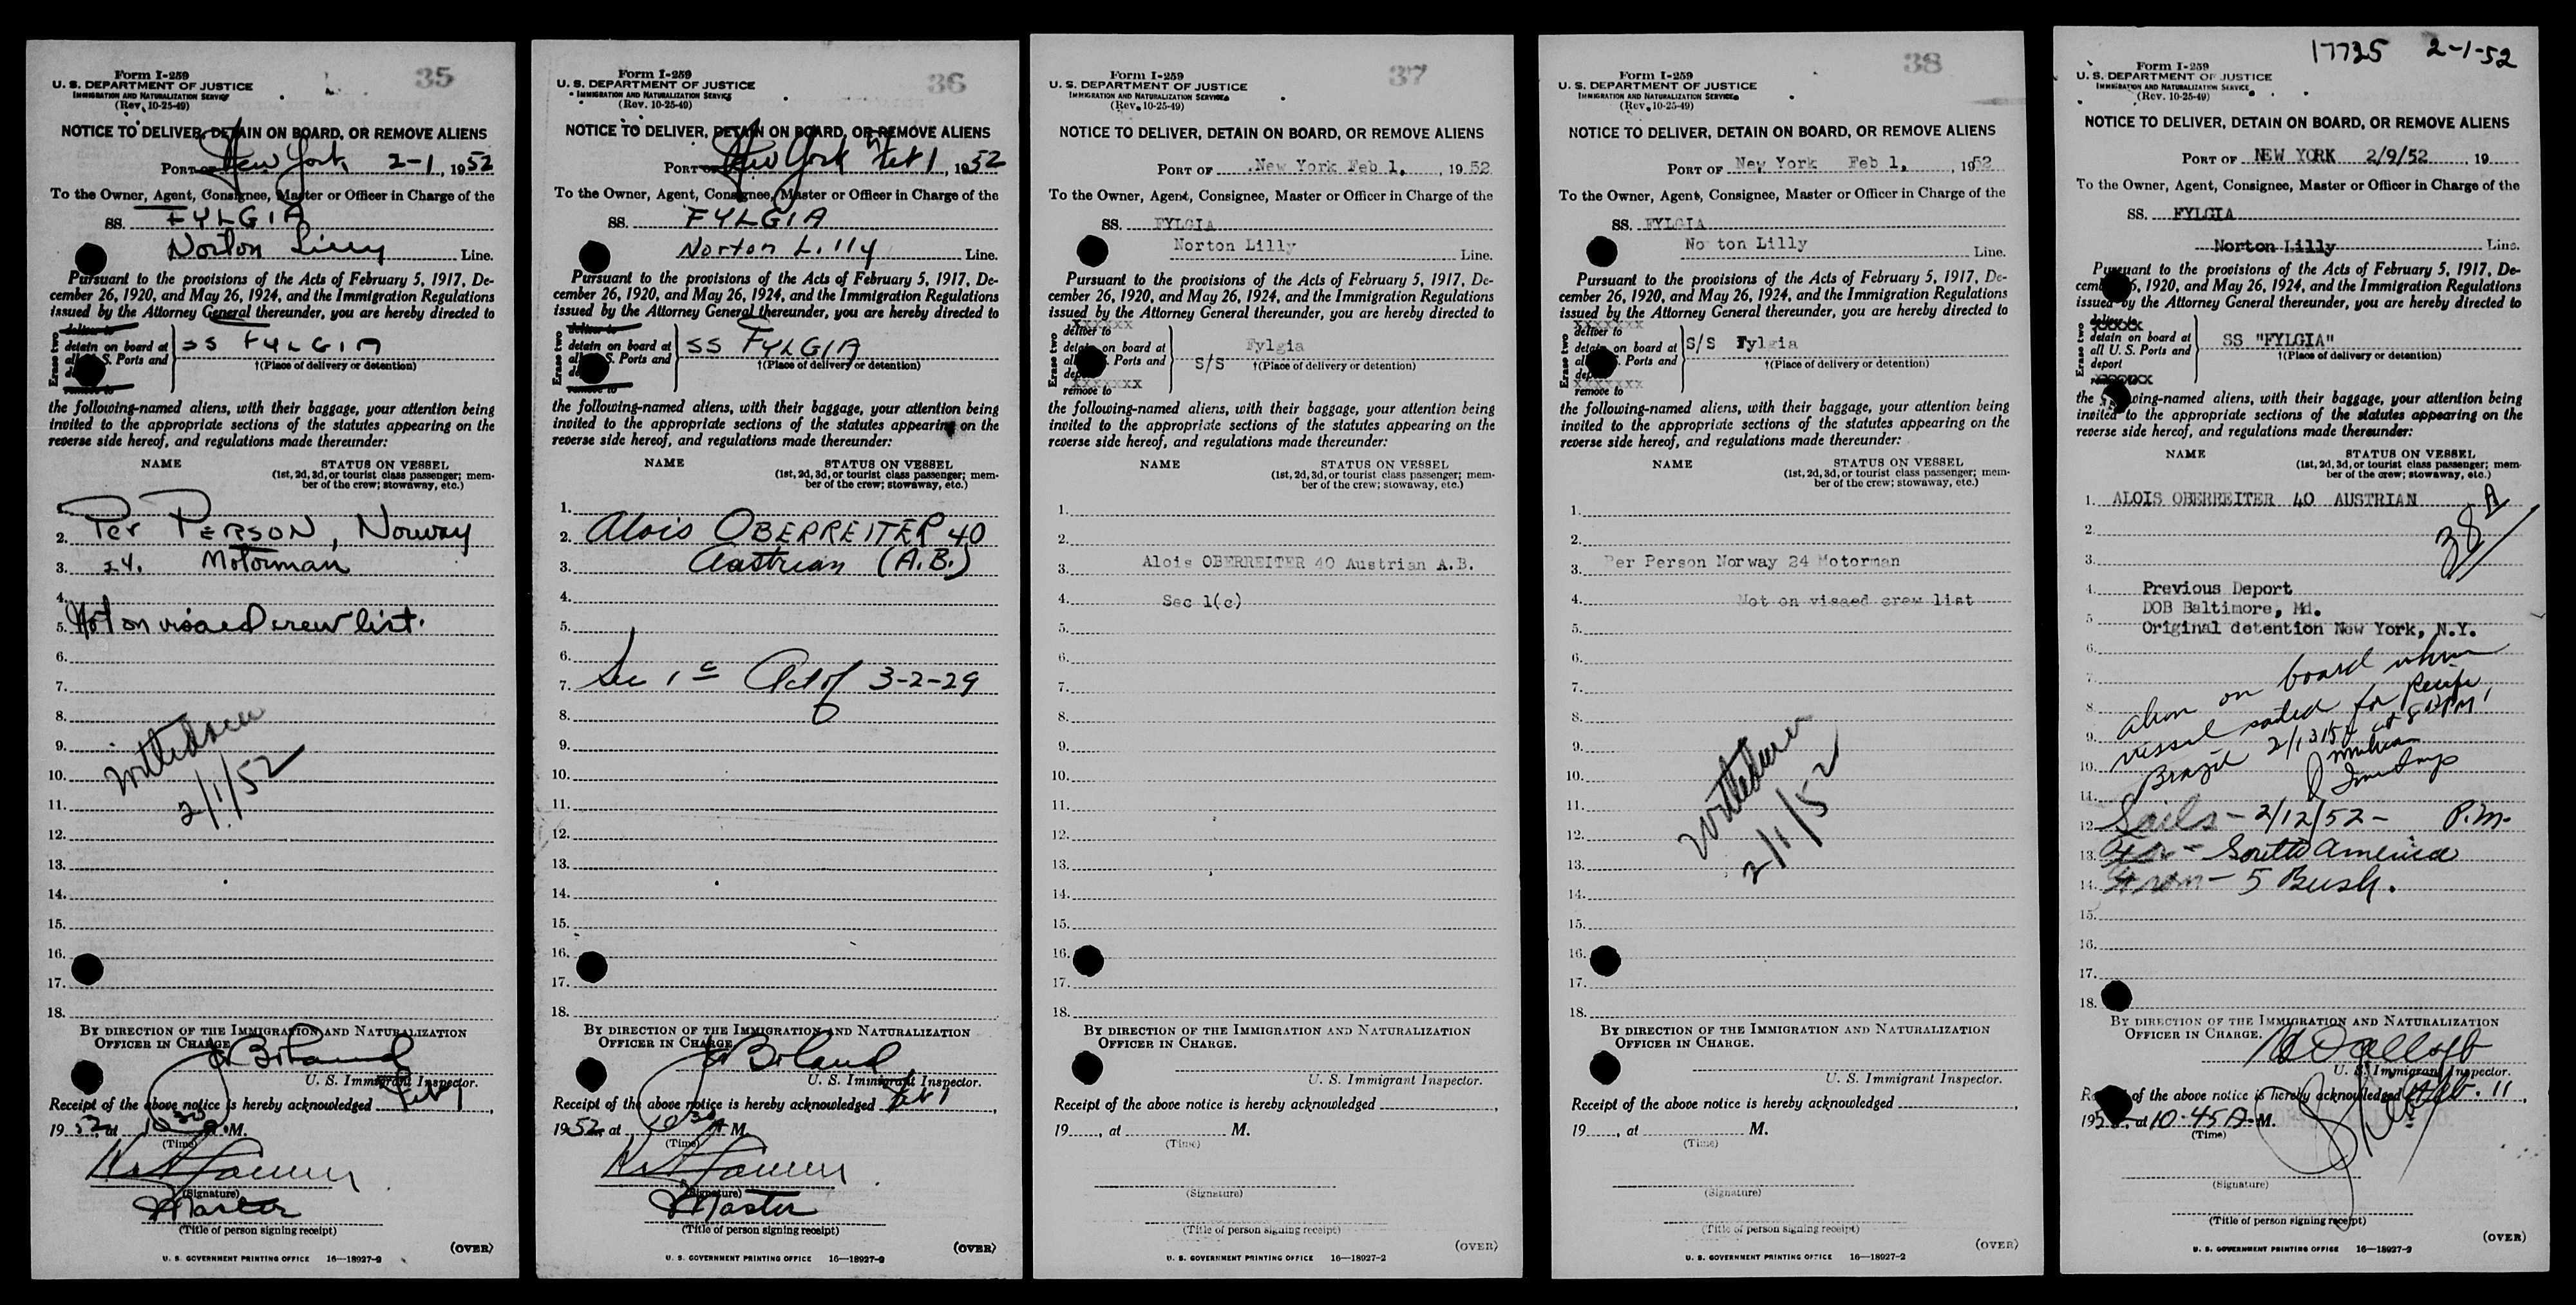 35
Form I-259
U. S. DEPARTMENT OF JUSTICE
IMMIGRATION AND NATURALIZATION SERVICE
(Rev. 10-25-49)
NOTICE TO DELIVER, DETAIN ON BOARD, OR REMOVE ALIENS
PORT OF New York, 2-1, 1952
To the Owner, Agent, Consignee, Master or Officer in Charge of the
SS. FYLGIA
Norton Lilly Line.
Pursuant to the provisions of the Acts of February 5, 1917, De-
cember 26, 1920, and May 26, 1924, and the Immigration Regulations
issued by the Attorney General thereunder, you are hereby directed to
Erase two
deliver to
detain on board at
all U. S. Ports and
remove to
SS FYLGIA
†(Place of delivery or detention)
the following-named aliens, with their baggage, your attention being
invited to the appropriate sections of the statutes appearing on the
reverse side hereof, and regulations made thereunder:
NAME STATUS ON VESSEL
(1st, 2d, 3d, or tourist class passenger; mem-
ber of the crew; stowaway, etc.)
1.
2. Per PERSON, Norway
3. 24. Motorman
4.
5. Not on visaed crew list.
6.
7.
8.
9.
10.
11.
2/1/52
12.
13.
14.
15.
16.
17.
18.
BY DIRECTION OF THE IMMIGRATION AND NATURALIZATION
OFFICER IN CHARGE
Boland
U. S. Immigrant Inspector.
Receipt of the above notice is hereby acknowledged Feb 1,
1952, at 10 30 A.M.
(Time)
(Signature)
Master
(Title of person signing receipt)
(OVER)
U. S. GOVERNMENT PRINTING OFFICE 16—18927-2
36
Form I-259
U. S. DEPARTMENT OF JUSTICE
IMMIGRATION AND NATURALIZATION SERVICE
(Rev. 10-25-49)
NOTICE TO DELIVER, DETAIN ON BOARD, OR REMOVE ALIENS
PORT OF New York Feb 1, 1952
To the Owner, Agent, Consignee, Master or Officer in Charge of the
SS. FYLGIA
Norton Lilly Line.
Pursuant to the provisions of the Acts of February 5, 1917, De-
cember 26, 1920, and May 26, 1924, and the Immigration Regulations
issued by the Attorney General thereunder, you are hereby directed to
Erase two
deliver to
detain on board at
all U. S. Ports and
remove to
SS FYLGIA
†(Place of delivery or detention)
the following-named aliens, with their baggage, your attention being
invited to the appropriate sections of the statutes appearing on the
reverse side hereof, and regulations made thereunder:
NAME STATUS ON VESSEL
(1st, 2d, 3d, or tourist class passenger; mem-
ber of the crew; stowaway, etc.)
1.
2. Alois OBERREITER 40
3. Austrian (A.B.)
4.
5.
6.
7. Sec 1 c Act of 3-2-29
8.
9.
10.
11.
12.
13.
14.
15.
16.
17.
18.
BY DIRECTION OF THE IMMIGRATION AND NATURALIZATION
OFFICER IN CHARGE
Boland
U. S. Immigrant Inspector.
Receipt of the above notice is hereby acknowledged Feb 1,
1952, at 10 30 A M.
(Time)
(Signature)
Master
(Title of person signing receipt)
(OVER)
U. S. GOVERNMENT PRINTING OFFICE 16—18927-2
37
Form I-259
U. S. DEPARTMENT OF JUSTICE
IMMIGRATION AND NATURALIZATION SERVICE
(Rev. 10-25-49)
NOTICE TO DELIVER, DETAIN ON BOARD, OR REMOVE ALIENS
PORT OF New York Feb 1, 1952
To the Owner, Agent, Consignee, Master or Officer in Charge of the
SS. FYLGIA
Norton Lilly Line.
Pursuant to the provisions of the Acts of February 5, 1917, De-
cember 26, 1920, and May 26, 1924, and the Immigration Regulations
issued by the Attorney General thereunder, you are hereby directed to
Erase two
xxxxxxx
deliver to
detain on board at
all U. S. Ports and
deport
xxxxxxx
remove to
S/S Fylgia
†(Place of delivery or detention)
the following-named aliens, with their baggage, your attention being
invited to the appropriate sections of the statutes appearing on the
reverse side hereof, and regulations made thereunder:
NAME STATUS ON VESSEL
(1st, 2d, 3d, or tourist class passenger; mem-
ber of the crew; stowaway, etc.)
1.
2.
3. Alois OBERREITER 40 Austrian A.B.
4. Sec 1(c)
5.
6.
7.
8.
9.
10.
11.
12.
13.
14.
15.
16.
17.
18.
BY DIRECTION OF THE IMMIGRATION AND NATURALIZATION
OFFICER IN CHARGE.
U. S. Immigrant Inspector.
Receipt of the above notice is hereby acknowledged ,
19 , at M.
(Time)
(Signature)
(Title of person signing receipt)
(OVER)
U. S. GOVERNMENT PRINTING OFFICE 16—18927-2
38
Form I-259
U. S. DEPARTMENT OF JUSTICE
IMMIGRATION AND NATURALIZATION SERVICE
(Rev. 10-25-49)
NOTICE TO DELIVER, DETAIN ON BOARD, OR REMOVE ALIENS
PORT OF New York Feb 1, 1952
To the Owner, Agent, Consignee, Master or Officer in Charge of the
SS. FYLGIA
No ton Lilly Line.
Pursuant to the provisions of the Acts of February 5, 1917, De-
cember 26, 1920, and May 26, 1924, and the Immigration Regulations
issued by the Attorney General thereunder, you are hereby directed to
Erase two
xxxxxxx
deliver to
detain on board at
all U. S. Ports and
deport
xxxxxxx
remove to
S/S Fylgia
†(Place of delivery or detention)
the following-named aliens, with their baggage, your attention being
invited to the appropriate sections of the statutes appearing on the
reverse side hereof, and regulations made thereunder:
NAME STATUS ON VESSEL
(1st, 2d, 3d, or tourist class passenger; mem-
ber of the crew; stowaway, etc.)
1.
2.
3. Per Person Norway 24 Motorman
4. Not on visaed crew list
5.
6.
7.
8.
9.
10.
11.
12.
13.
2/1/52
14.
15.
16.
17.
18.
BY DIRECTION OF THE IMMIGRATION AND NATURALIZATION
OFFICER IN CHARGE.
U. S. Immigrant Inspector.
Receipt of the above notice is hereby acknowledged ,
19 , at M.
(Time)
(Signature)
(Title of person signing receipt)
(OVER)
U. S. GOVERNMENT PRINTING OFFICE 16—18927-2
17735 2-1-52
Form I-259
U. S. DEPARTMENT OF JUSTICE
IMMIGRATION AND NATURALIZATION SERVICE
(Rev. 10-25-49)
NOTICE TO DELIVER, DETAIN ON BOARD, OR REMOVE ALIENS
PORT OF NEW YORK 2/9/52 , 19
To the Owner, Agent, Consignee, Master or Officer in Charge of the
SS. FYLGIA
Norton Lilly Line.
Pursuant to the provisions of the Acts of February 5, 1917, De-
cember 26, 1920, and May 26, 1924, and the Immigration Regulations
issued by the Attorney General thereunder, you are hereby directed to
Erase two
deliver to
detain on board at
all U. S. Ports and
deport
SS "FYLGIA"
†(Place of delivery or detention)
the following-named aliens, with their baggage, your attention being
invited to the appropriate sections of the statutes appearing on the
reverse side hereof, and regulations made thereunder:
NAME STATUS ON VESSEL
(1st, 2d, 3d, or tourist class passenger; mem-
ber of the crew; stowaway, etc.)
1. ALOIS OBERREITER 40 AUSTRIAN
2.
38 A
3.
4. Previous Deport
DOB Baltimore, Md.
5. Original detention New York, N.Y.
6.
7.
8. alien on board when
9. vessel sailed for Recife,
10. Brazil 2/13/52 at 8 12 PM
11.
12. Sails - 2/12/52 - P.M.
13. For - South America
14. From - 5 Bush.
15.
16.
17.
18.
BY DIRECTION OF THE IMMIGRATION AND NATURALIZATION
OFFICER IN CHARGE.
U. S. Immigrant Inspector.
Receipt of the above notice is hereby acknowledged Feb. 11,
195 , at 10.45 A. M.
(Time)
(Signature)
(Title of person signing receipt)
(OVER)
U. S. GOVERNMENT PRINTING OFFICE 16—18927-2